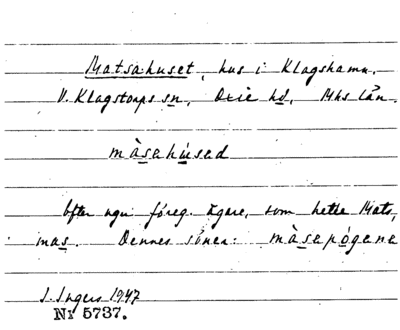 Matsahuset, hus i Klagshamn.
V. Klagstorps sn, Oxie hd, Mhs län.
màsahúsad
Efter ngn föreg. ägare, som hette Mats,
mas. Dennes söner: màsapògana
I. Ingers 1947
Nr 5737.